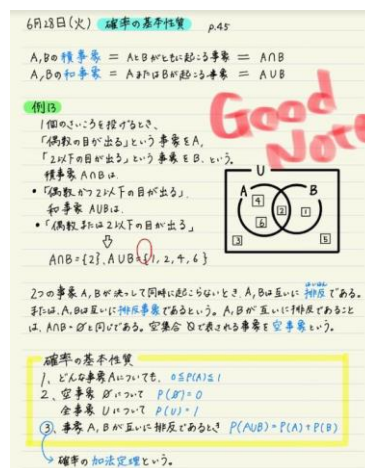 6月28日(火) 確率の基本性質 p.45
A,Bの積事象 = AとBがともに起こる事象 = A∩B
A,Bの和事象 = AまたはBが起こる事象 = A∪B
例13
1個のさいころを投げるとき、
「偶数の目が出る」という事象をA、
「2以下の目が出る」という事象をB、という。
積事象A∩Bは、
・「偶数かつ2以下の目が出る」
和事象A∪Bは、
・「偶数または2以下の目が出る」
⇩
A∩B={2}、A∪B={1,2,4,6}
Good
Note
U
A B
4
2 1
6
3 5
2つの事象A,Bが決して同時に起こらないとき、A,Bは互いに排反である。
または、A,Bは互いに排反事象であるという。A,Bが互いに排反であること
は、A∩B=∅と同じである。空集合∅で表される事象を空事象という。
確率の基本性質
1、どんな事象Aについても、0≦P(A)≦1
2、空事象∅について P(∅)=0
全事象Uについて P(U)=1
③、事象A,Bが互いに排反であるとき P(A∪B)=P(A)+P(B)
確率の加法定理という。